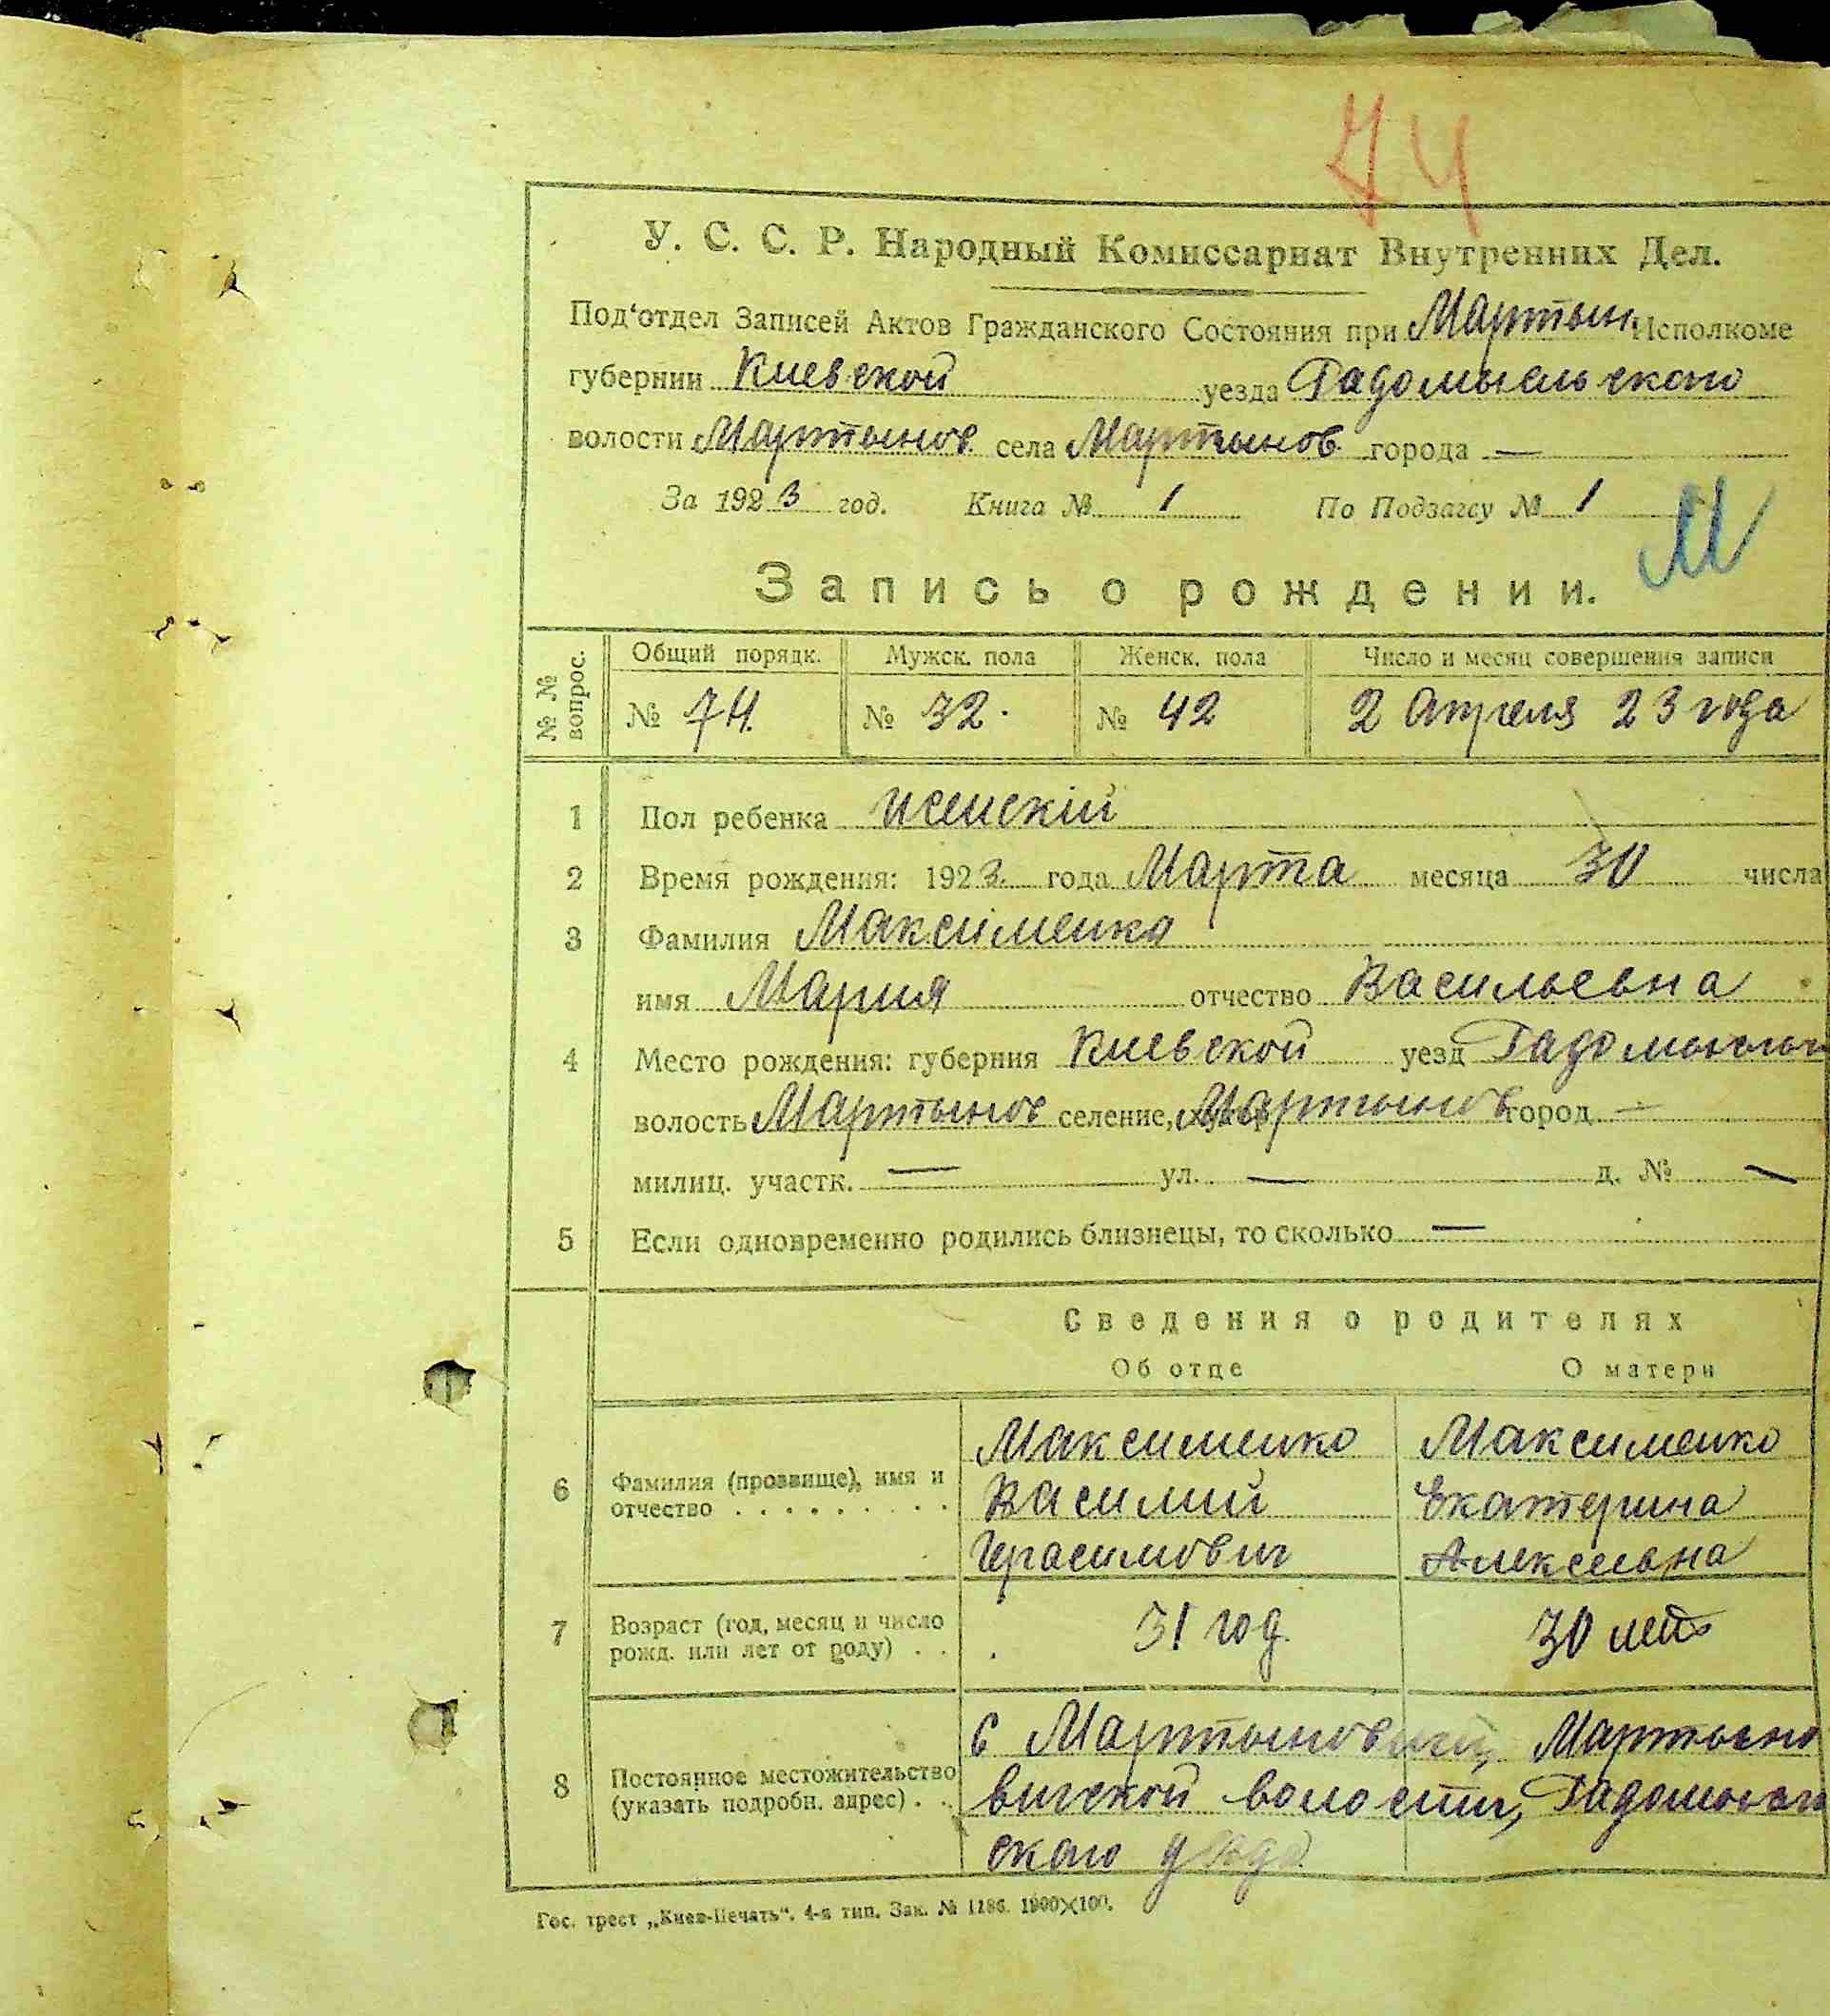 74
У. С. С. Р. Народный Комиссариат Внутренних Дел.
Под'отдел Записей Актов Гражданского Состояния при Мартын. Исполкоме
губернии Киевской уезда Радомысльского
волости Мартынов. села Мартынов. города —
За 1923 год. Книга № 1 По Подзагсу № 1
М
Запись о рождении.
№ № вопрос. Общий порядк. Мужск. пола Женск. пола Число и месяц совершения записи
№ 74. № 32. № 42 2 Апреля 23 года
1 Пол ребенка женскій
2 Время рождения: 1923. года Марта месяца 30 числа
3 Фамилия Максименко
имя Мария отчество Васильевна
4 Место рождения: губерния Киевской уезд
волость Мартынов селение, Мартынов город —
милиц. участк. — ул. — д. № —
5 Если одновременно родились близнецы, то сколько —
Сведения о родителях
Об отце О матери
Максименко Максименко
6 Фамилия (прозвище), имя и отчество Василий Екатерина
Герасимович Алексеевна
7 Возраст (год, месяц и число рожд. или лет от роду) . . 31 год. 30 лет
с Мартынов Мартыно
8 Постоянное местожительство (указать подробн. адрес) . . вичской волости,
ского уезда.
Гос. трест „Киев-Печать". 4-я тип. Зак. № 1186. 1900×100.